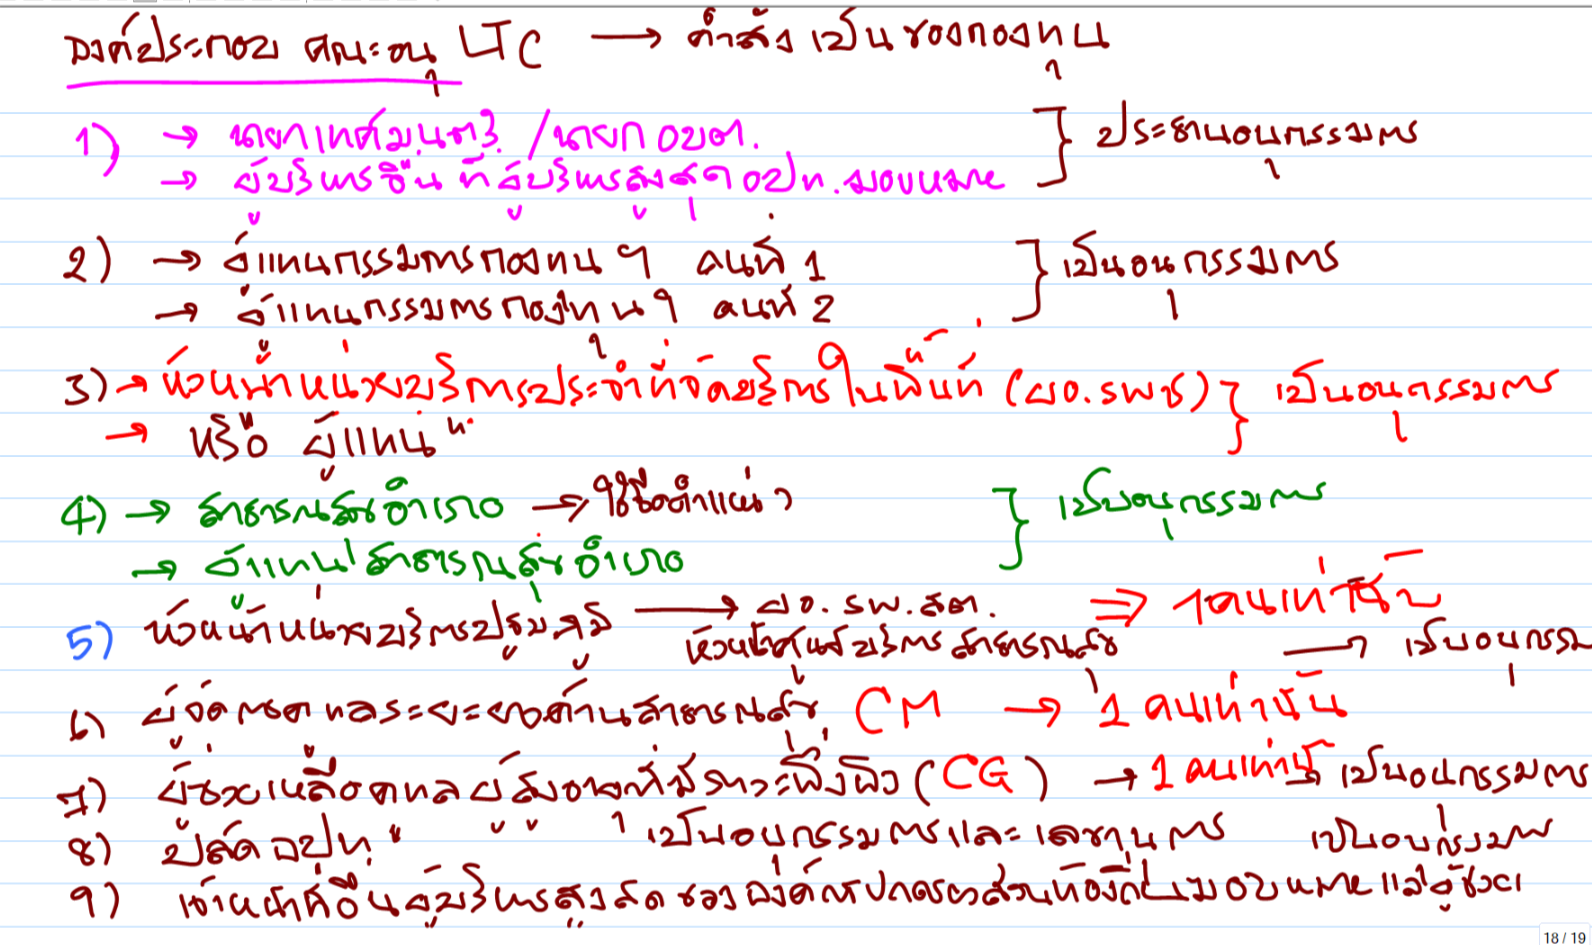 องค์ประกอบ คณะอนุ LTC → คำสั่ง เป็นของกองทุน
1) → นายกเทศมนตรี / นายก อบต. } ประธานอนุกรรมการ
→ ผู้บริหารอื่น ที่ผู้บริหารสูงสุด อปท. มอบหมาย
2) → ผู้แทนกรรมการกองทุน ฯ คนที่ 1 } เป็นอนุกรรมการ
→ ผู้แทนกรรมการกองทุน ฯ คนที่ 2
3) → หัวหน้าหน่วยบริการประจำที่จัดบริการในพื้นที่ (ผอ.รพช) } เป็นอนุกรรมการ
→ หรือ ผู้แทน "
4) → สาธารณสุขอำเภอ → ใช้ชื่อตำแหน่ง } เป็นอนุกรรมการ
→ ผู้แทนสาธารณสุขอำเภอ
5) หัวหน้าหน่วยบริการปฐมภูมิ → ผอ. รพ.สต. ⇒ 1 คนเท่านั้น
หัวหน้าศูนย์บริการสาธารณสุข → เป็นอนุกรรม
6) ผู้จัดการดูแลระยะยาวด้านสาธารณสุข CM → 1 คนเท่านั้น
7) ผู้ช่วยเหลือดูแลผู้สูงอายุที่มีภาวะพึ่งพิง (CG) → 1 คนเท่านั้น เป็นอนุกรรมการ
8) ปลัด อปท. " เป็นอนุกรรมการและเลขานุการ เป็นอนุกรรมการ
9) เจ้าหน้าที่อื่นผู้บริหารสูงสุดของ องค์กรปกครองส่วนท้องถิ่นมอบหมาย
18 / 19